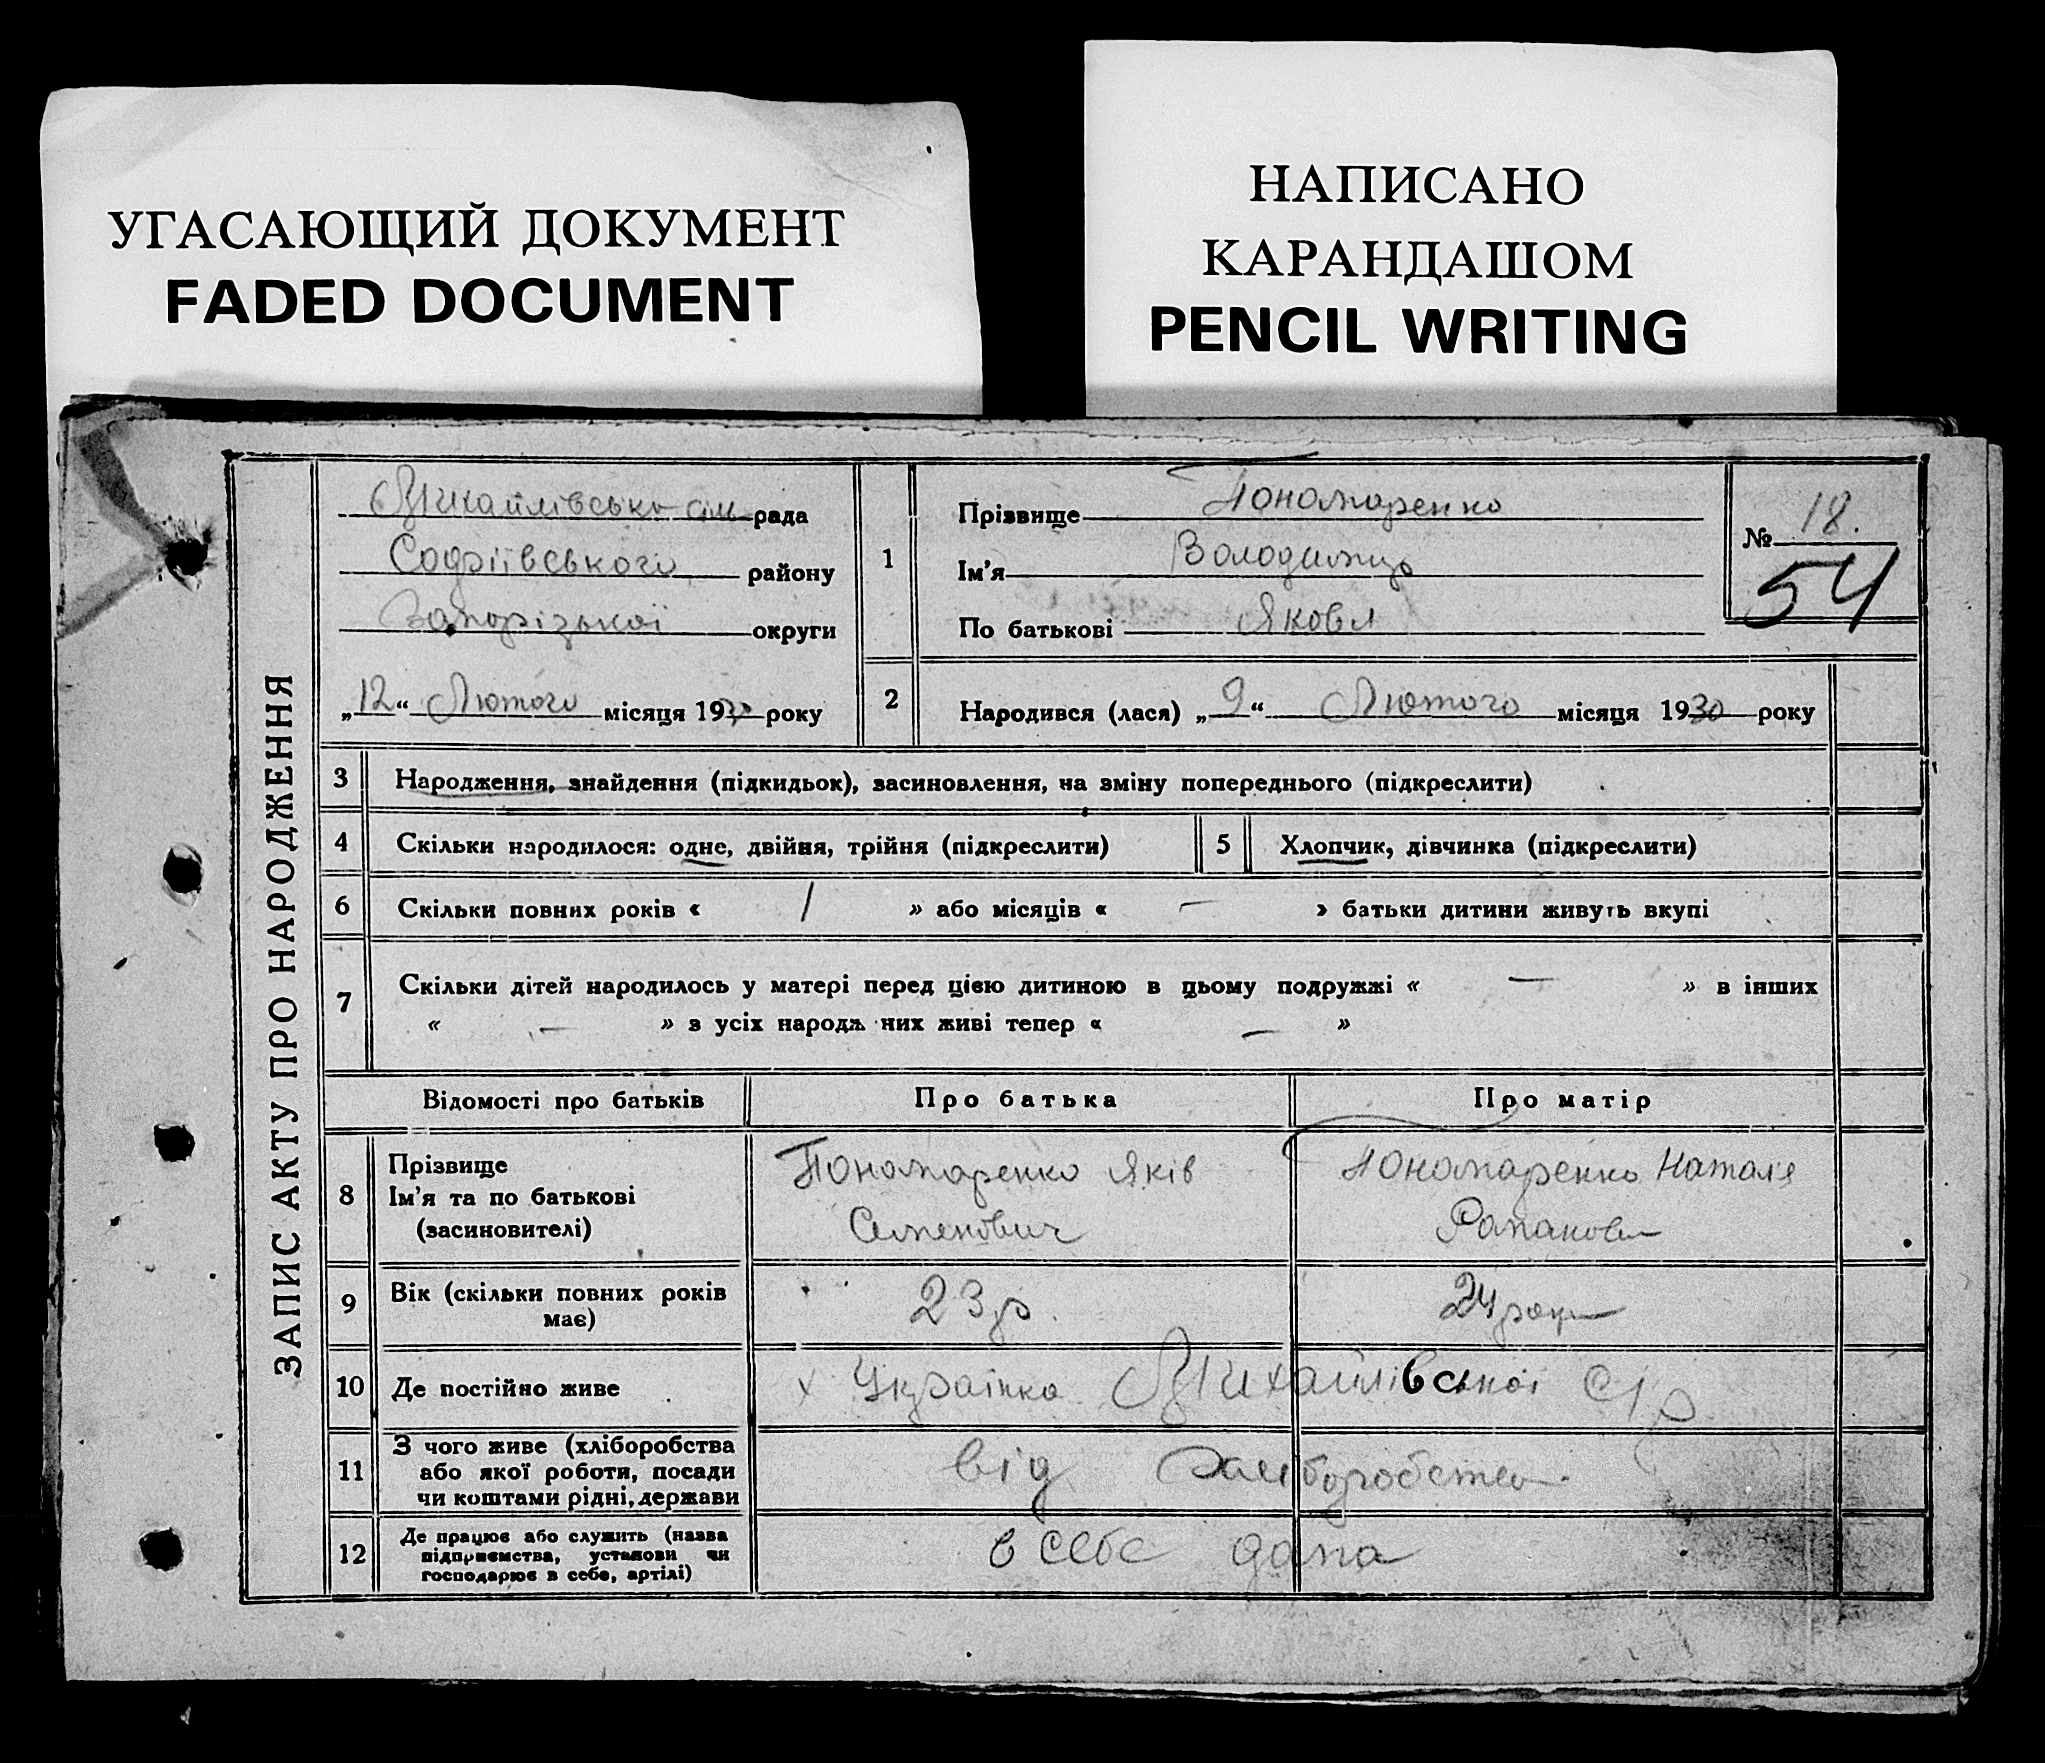 УГАСАЮЩИЙ ДОКУМЕНТ
FADED DOCUMENT
НАПИСАНО
КАРАНДАШОМ
PENCIL WRITING
ЗАПИС АКТУ ПРО НАРОДЖЕННЯ
Михайлівська сіл рада
Софіївського району
Запорізької округи
„12“ Лютого місяця 1930 року
1
Прізвище Пономаренко
Ім'я Володимир
По батькові Яковл
№ 18.
54
2 Народився (лася) „9“ Лютого місяця 1930 року
3 Народження, знайдення (підкидьок), засиновлення, на зміну попереднього (підкреслити)
4 Скільки народилося: одне, двійня, трійня (підкреслити) 5 Хлопчик, дівчинка (підкреслити)
6 Скільки повних років « 1 » або місяців « — » батьки дитини живуть вкупі
7 Скільки дітей народилось у матері перед цією дитиною в цьому подружжі « — » в інших
« — » з усіх народж них живі тепер « — »
Відомості про батьків Про батька Про матір
8 Прізвище
Ім'я та по батькові
(засиновителі)
Пономаренко Яків
Семенович
Пономаренко Наталя
9 Вік (скільки повних років
має)
23 р.
24 роки
10 Де постійно живе х Українка Михайлівської С/р
11 З чого живе (хліборобства
або якої роботи, посади
чи коштами рідні, держави
від хліборобства
12 Де працює або служить (назва
підприємства, установи чи
господарює в себе, артілі)
в себе дома